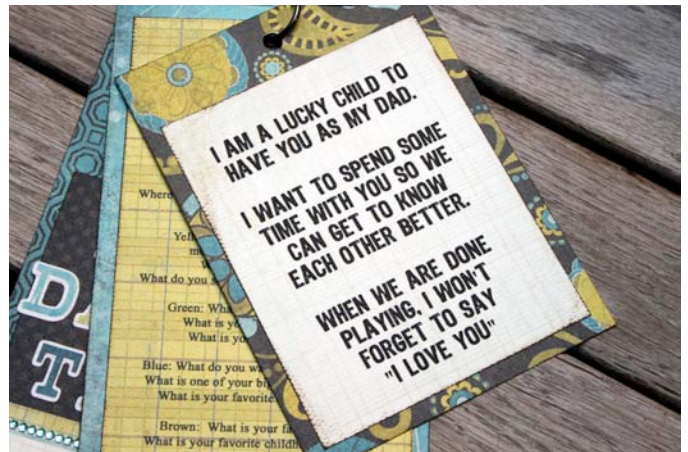 I AM A LUCKY CHILD TO
HAVE YOU AS MY DAD.
I WANT TO SPEND SOME
TIME WITH YOU SO WE
CAN GET TO KNOW
EACH OTHER BETTER.
WHEN WE ARE DONE
PLAYING, I WON'T
FORGET TO SAY
"I LOVE YOU"
Where
What do you
Green:
What is
What is
Blue: What do you
What is one of your
What is your favorite
Brown: What is your
What is your favorite